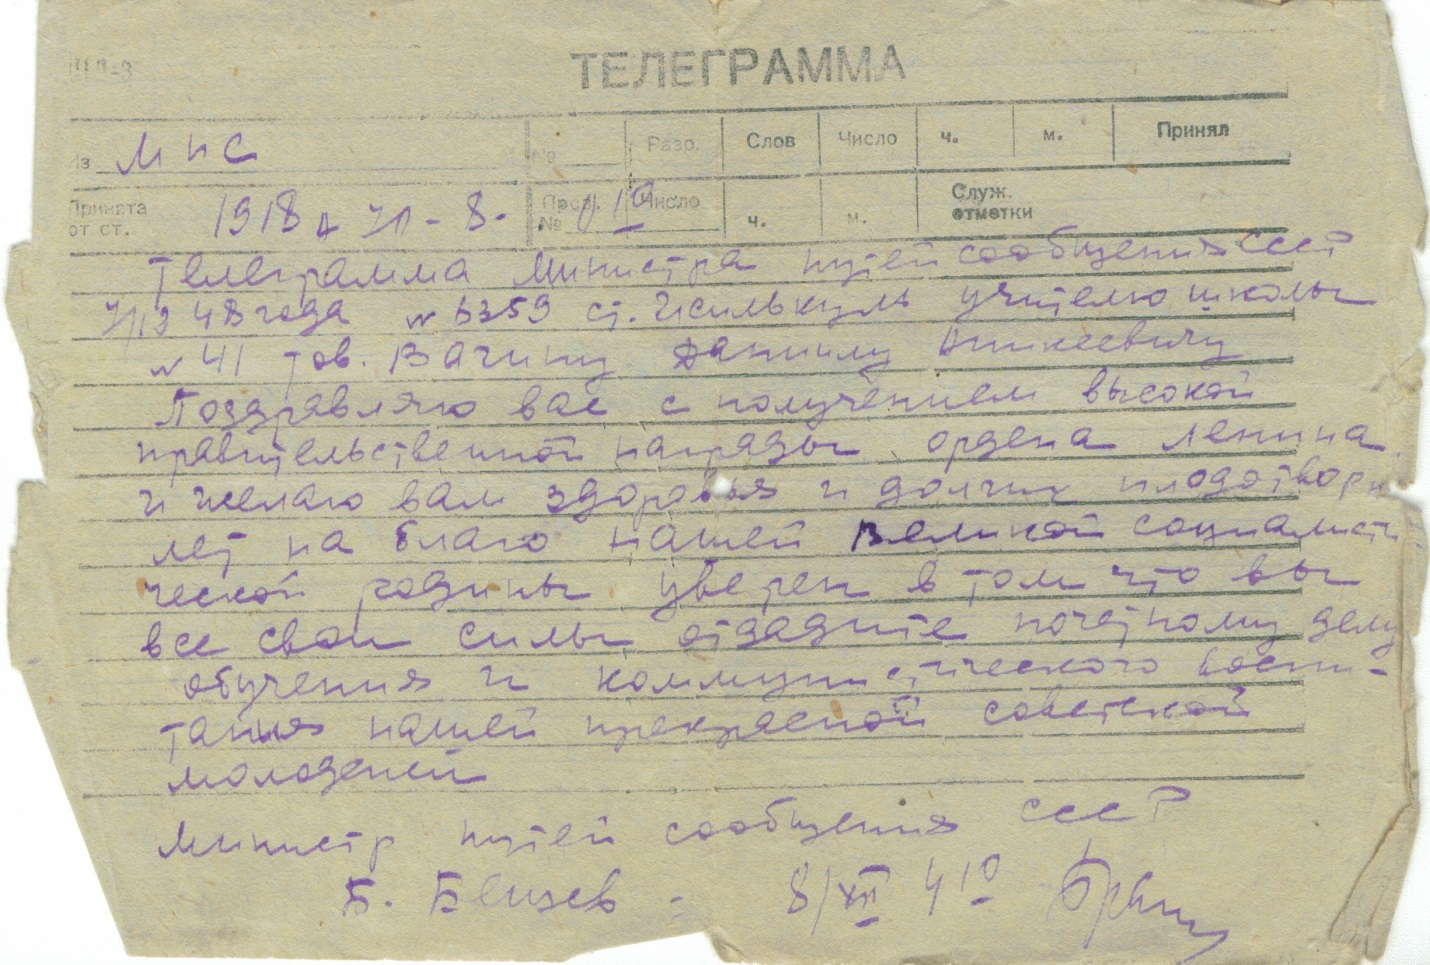 ТЕЛЕГРАММА
Из МПС № Разр. Слов Число ч. м. Принял
Принята 1918 - 8 - Прод. Число Служ.
от ст. № ч. м. отметки
Телеграмма Министра путей сообщения СССР
48 года № 6359 ст. Исилькуль учителю школы
№ 41 тов. Вагину Даниилу Аникеевичу
Поздравляю вас с получением высокой
правительственной награды ордена Ленина
и желаю вам здоровья и долгих плодотворн
лет на благо нашей великой социалисти-
ческой родины уверен в том что вы
все свои силы отдадите почетному делу
обучения и коммунистического воспи-
тания нашей прекрасной советской
молодежи
Министр путей сообщения СССР
Б. Бещев - 8/XII 4 10